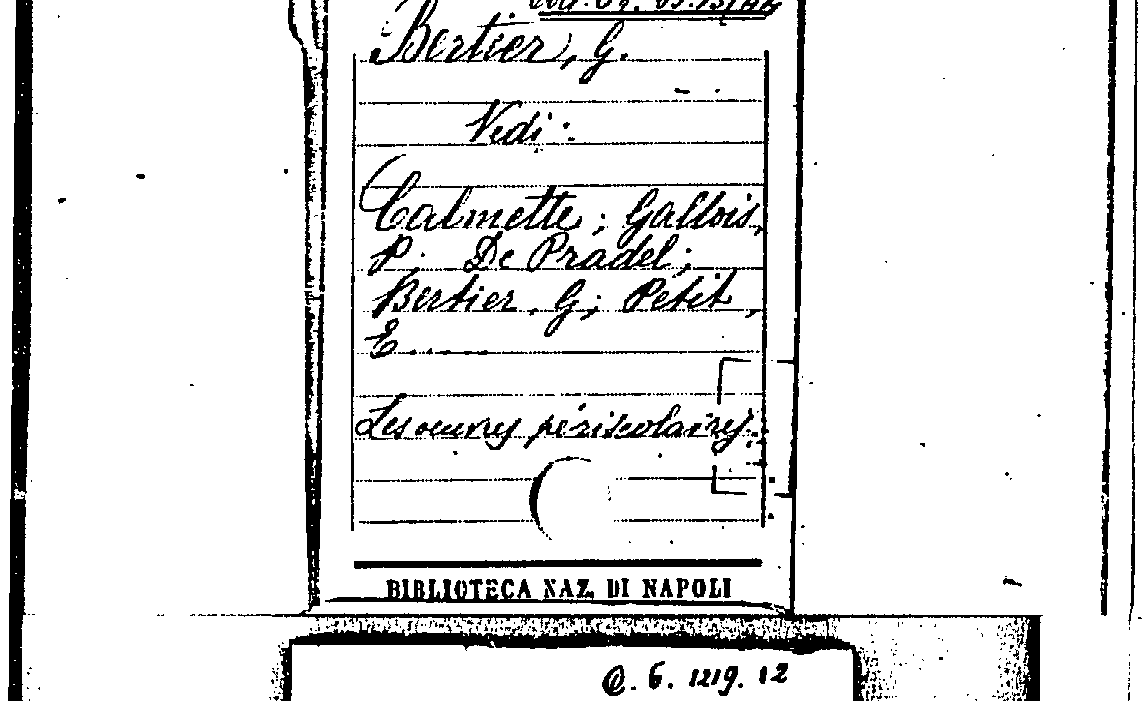 Bertier, G.
Vedi:
Calmette; Gallois,
P. De Pradel;
Bertier, G; Petit,
E.....
Les oeuvres périscolaires.
BIBLIOTECA NAZ. DI NAPOLI
Q. 6. 1219. 12